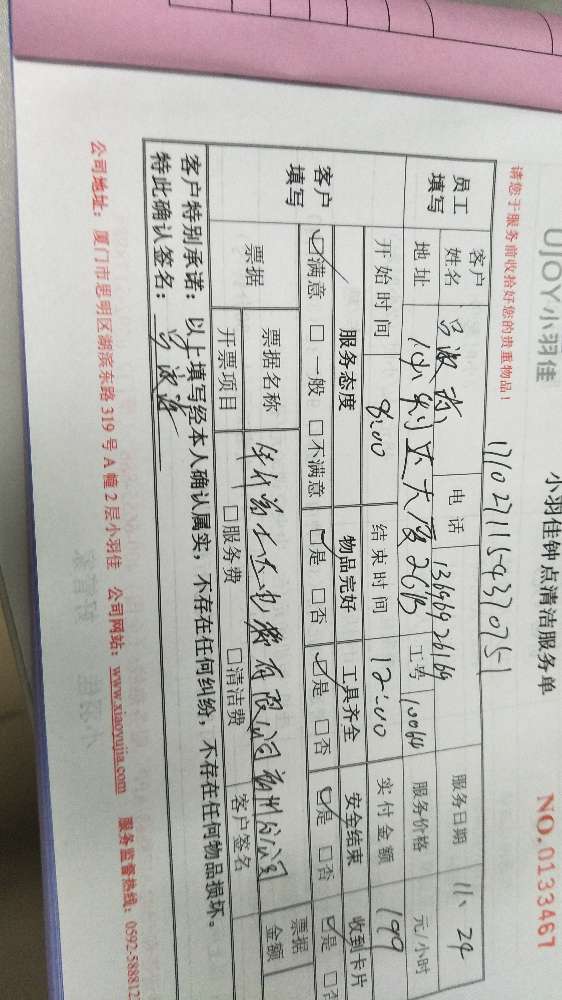 UJOY小羽佳 小羽佳钟点清洁服务单 NO.0133467
请您于服务前收拾好您的贵重物品！
员工填写 客户姓名 电话 13696926169 服务日期 11、24
地址 大厦26B 工号 10064 服务价格 元/小时
客户填写 开始时间 8:00 结束时间 12:00 实付金额 199
服务态度 物品完好 工具齐全 安全结束 收到卡片
☑满意 □一般 □不满意 ☑是 □否 ☑是 □否 ☑是 □否 ☑是 □否
票据 票据名称 有限公司 分公司 票据金额
开票项目 □服务费 □清洁费 客户签名
客户特别承诺：以上填写经本人确认属实，不存在任何纠纷，不存在任何物品损坏。
特此确认签名：
公司地址：厦门市思明区湖滨东路319号A幢2层小羽佳 公司网站：www.xiaoyujia.com 服务监督热线：0592-588812